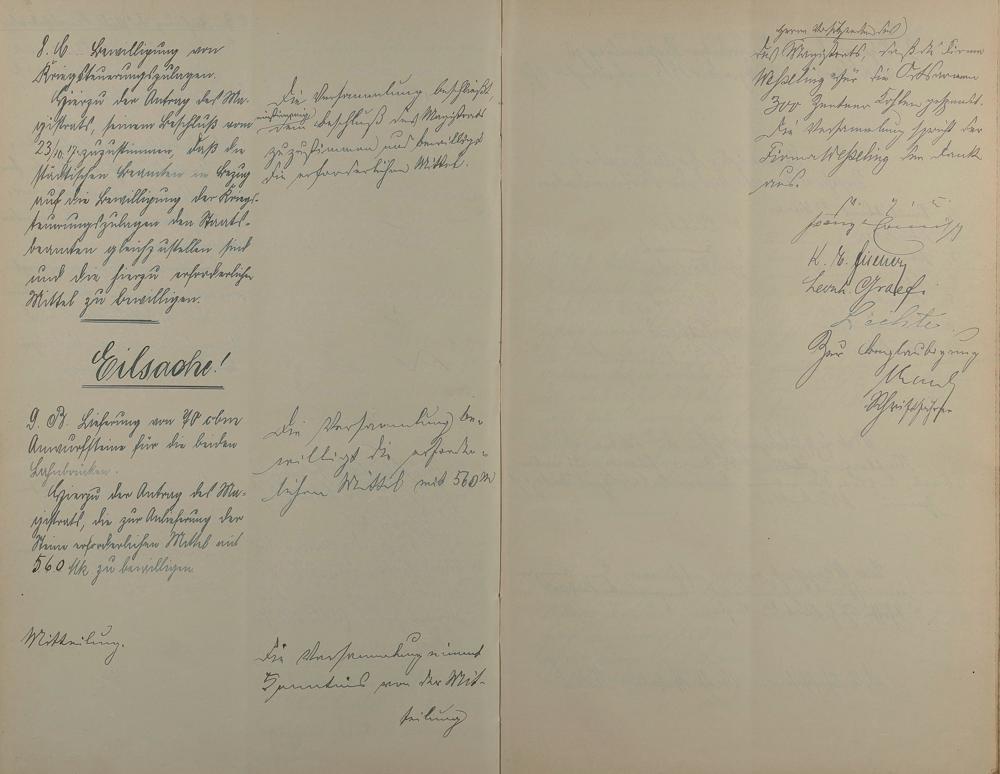 8. B. Bewilligung von
Kriegsteuerungszulagen.
Hierzu der Antrag des Ma-
gistrats, seinem Beschluß vom
23/10. 17. zuzustimmen, daß die
städtischen Beamten in Bezug
auf die Bewilligung der Kriegs-
teuerungszulagen den Staats-
beamten gleichzustellen sind
und die hierzu erforderlichen
Mittel zu bewilligen.
Die Versammlung beschließt
einstimmig
dem Beschluß des Magistrats
zuzustimmen und bewilligt
die erforderlichen Mittel.
Eilsache!
9. B. Lieferung von 70 cbm
Anwurfsteine für die beiden
Bahnbrücken.
Hierzu der Antrag des Ma-
gistrats, die zur Anlieferung der
Steine erforderlichen Mittel mit
560 Mk zu bewilligen
Die Versammlung be-
willigt die erforder-
lichen Mittel mit 560 M
Mitteilung.
Die Versammlung nimmt
Kenntnis von der Mit-
teilung
Herrn Vorsitzenden des
des Magistrats, daß die Firma
Weßling für die Ortsarmen
300 Zentner Kohlen gespendet.
Die Versammlung spricht der
Firma Weßling den Dank
aus.
K. E.
Leonh. Graef.
Zur Beglaubigung
Schriftführer